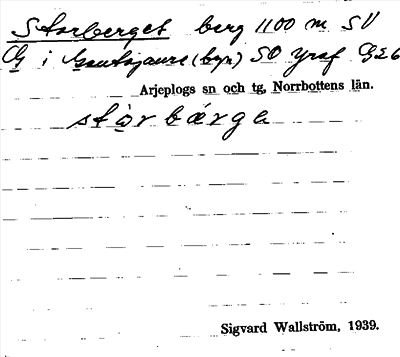 Storberget berg 1100 m SV
G i Gautojaure (byn) SO Yraf GE6
Arjeplogs sn och tg, Norrbottens län.
stòrbærge
Sigvard Wallström, 1939.